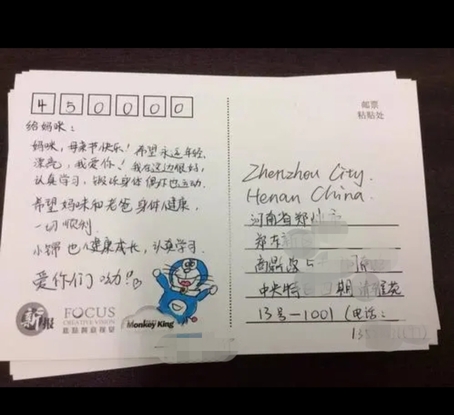 450000
邮票
粘贴处
给妈咪：
妈咪，母亲节快乐！希望永远年轻
漂亮，我爱你！我在这边很好，
认真学习，锻炼身体偶尔也运动.
希望妈咪和老爸身体健康，
一切顺利.
也健康成长，认真学习.
爱你们呦!!
Zhenzhou City.
Henan China.
河南省郑州
郑东
商鼎路
中央特 期
13号-1001（电话：
新报
FOCUS
CREATIVE VISION
Monkey King